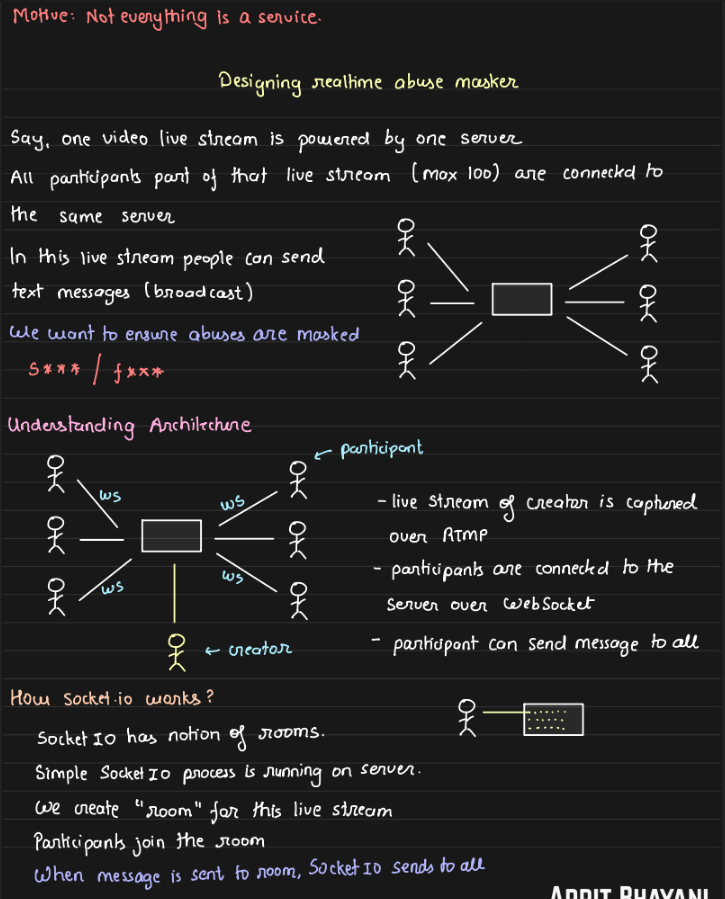 Motive: Not everything is a service.
Designing realtime abuse masker
Say, one video live stream is powered by one server
All participants part of that live stream (max 100) are connected to
the same server
In this live stream people can send
text messages (broadcast)
We want to ensure abuses are masked
s*** / f***
Understanding Architecture
participant
ws
ws
ws
ws
creator
- live stream of creator is captured
over RTMP
- participants are connected to the
server over WebSocket
- participant can send message to all
How Socket.io works?
Socket IO has notion of rooms.
Simple Socket IO process is running on server.
We create "room" for this live stream
Participants join the room
When message is sent to room, Socket IO sends to all
ARPIT BHAYANI